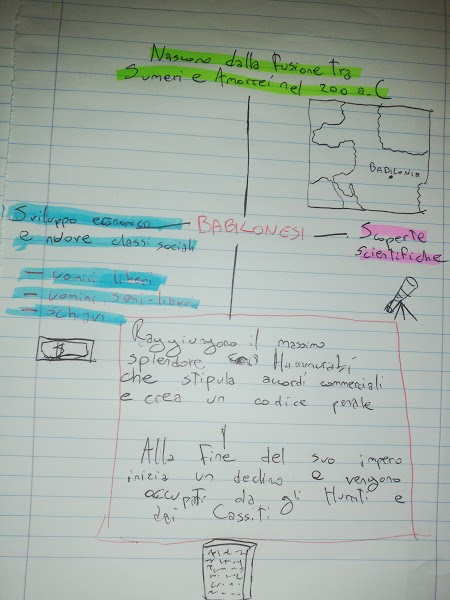 Nascono dalla fusione tra
Sumeri e Amorrei nel 200 a.C
BABILONIA
Sviluppo economico
e nuove classi sociali
- uomini liberi
- uomini semi-liberi
- schiavi
BABILONESI
Scoperte
scientifiche
$
Raggiungono il massimo
splendore Hammurabi
che stipula accordi commerciali
e crea un codice penale
Alla fine del suo impero
inizia un declino e vengono
occupati da gli Hurriti e
dei Cassiti